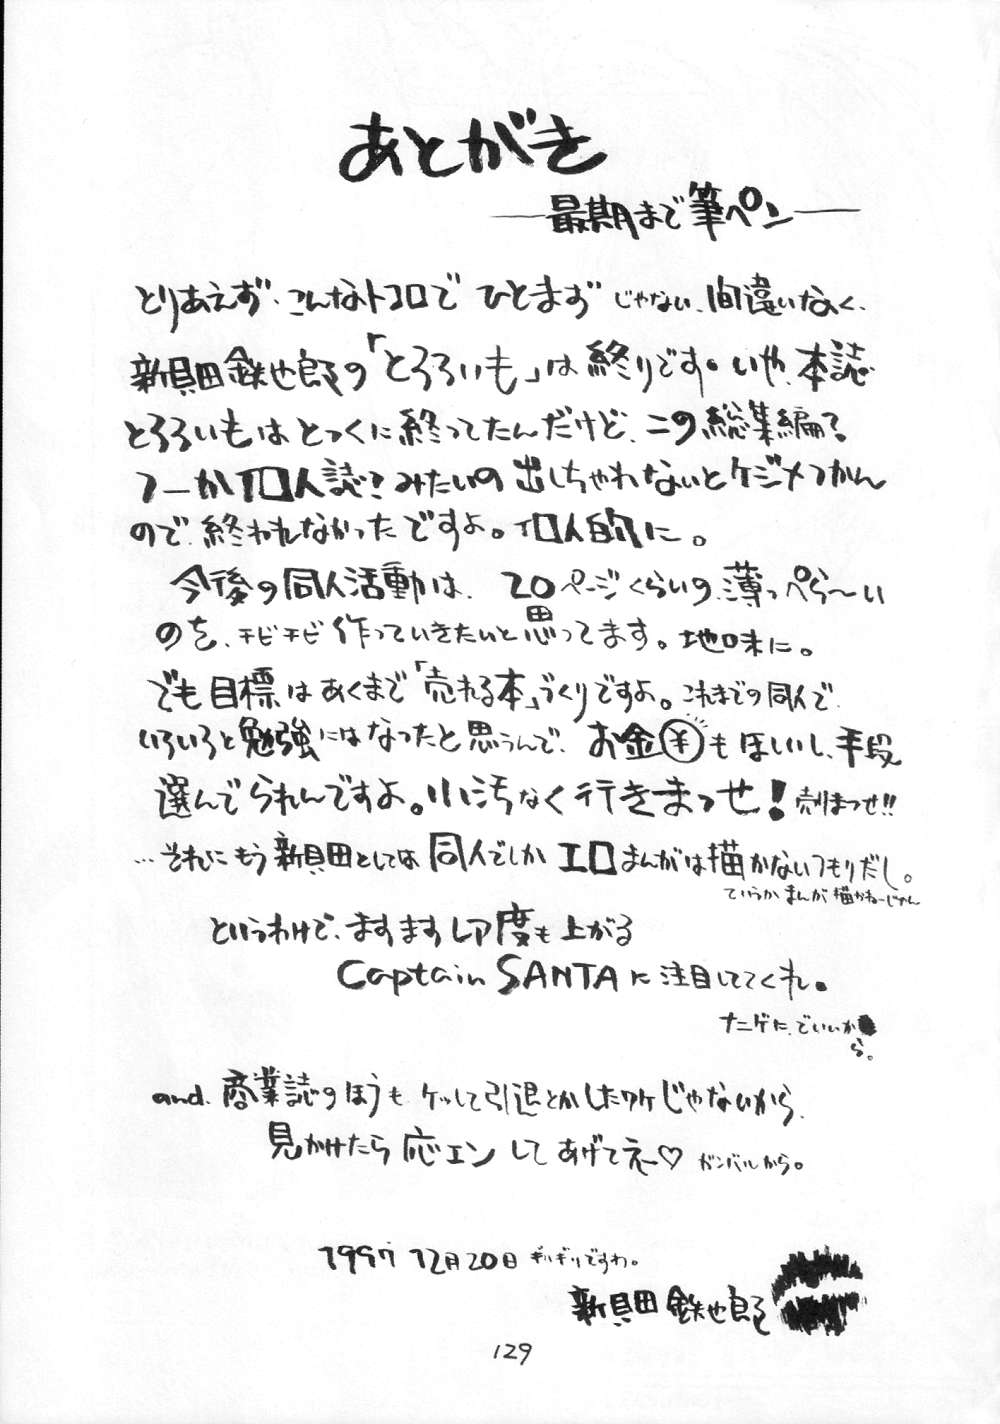 あとがき
―最期まで筆ペン―
とりあえず、こんなトコロで ひとまず じゃない、間違いなく、
新貝田鉄也郎の「とろろいも」は終りです。いや、本誌
とろろいもはとっくに終ってたんだけど、この総集編?
つーか個人誌?みたいの出しちゃわないとケジメつかん
ので、終われなかったですよ。個人的に。
今後の同人活動は、20ページくらいの、薄っぺら〜い
のを、チビチビ作っていきたいと思ってます。地味に。
でも目標はあくまで「売れる本」づくりですよ。これまでの同人で、
いろいろと勉強にはなったと思うんで、お金¥もほしいし、手段
選んでられんですよ。小汚なく行きまっせ!売りまっせ!!
…それにもう新貝田としては同人でしかエロまんがは描かないつもりだし。
ていうかまんが描かねーじゃん
というわけで、ますますレア度も上がる
Captain SANTAに注目しててくれ。
ナニゲに、でいいか
ら。
and、商業誌のほうも、ケッして引退とかしたワケじゃないから、
見かけたら応エンしてあげてネー♡ ガンバルから。
1997 12月20日 ギリギリですわ。
新貝田鉄也郎
129